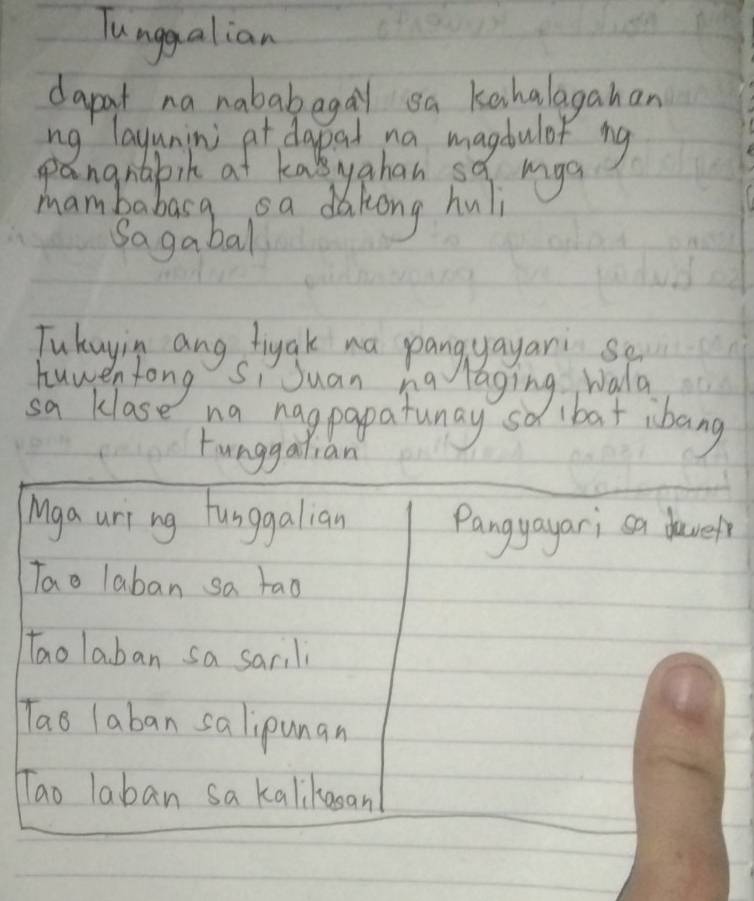 Tunggalian
dapat na nababagay sa kahalagahan
ng layunini at dapat na magdulot ng
pangnabik at kasiyahan sa mga
mambabasa sa dakong huli
Sagabal
Tukuyin ang tiyak na pangyayari sa
kuwentong si Juan na laging wala
sa klase na nagpapatunay sa ibat ibang
tunggalian
Mga uri ng tunggalian
Pangyayari sa
Tao laban sa tao
Tao laban sa sarili
Tao laban salipunan
Tao laban sa kalikasan